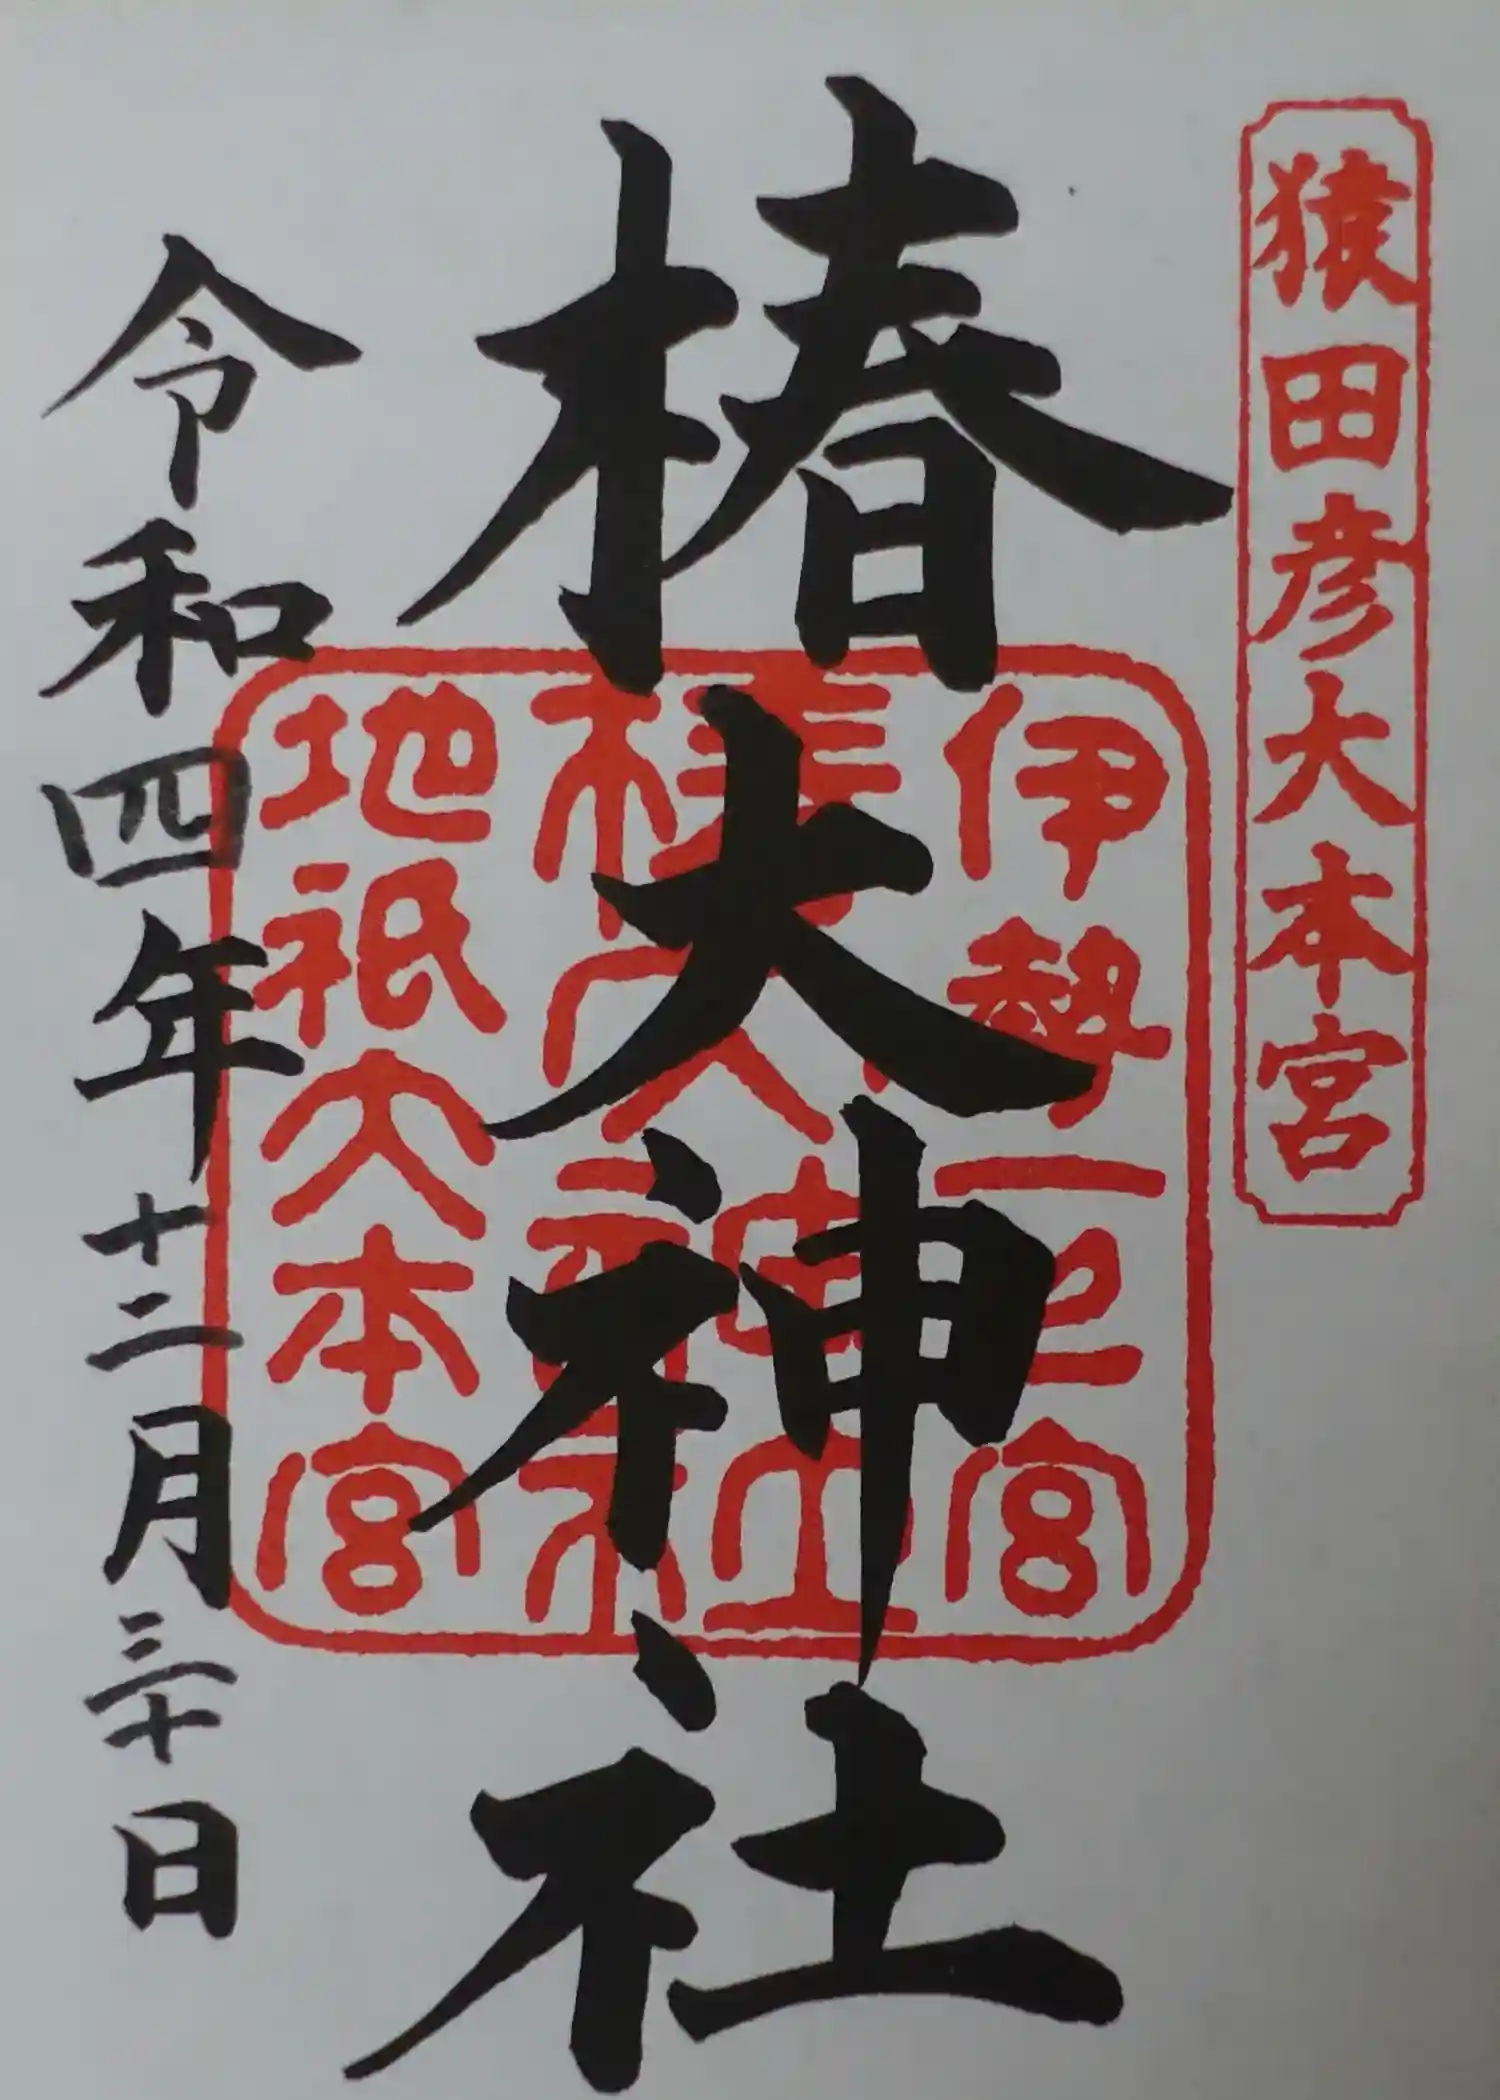 猿田彦大本宮
椿大神社
伊勢一之宮
椿大神社
地祇大本宮
令和四年十二月三十日